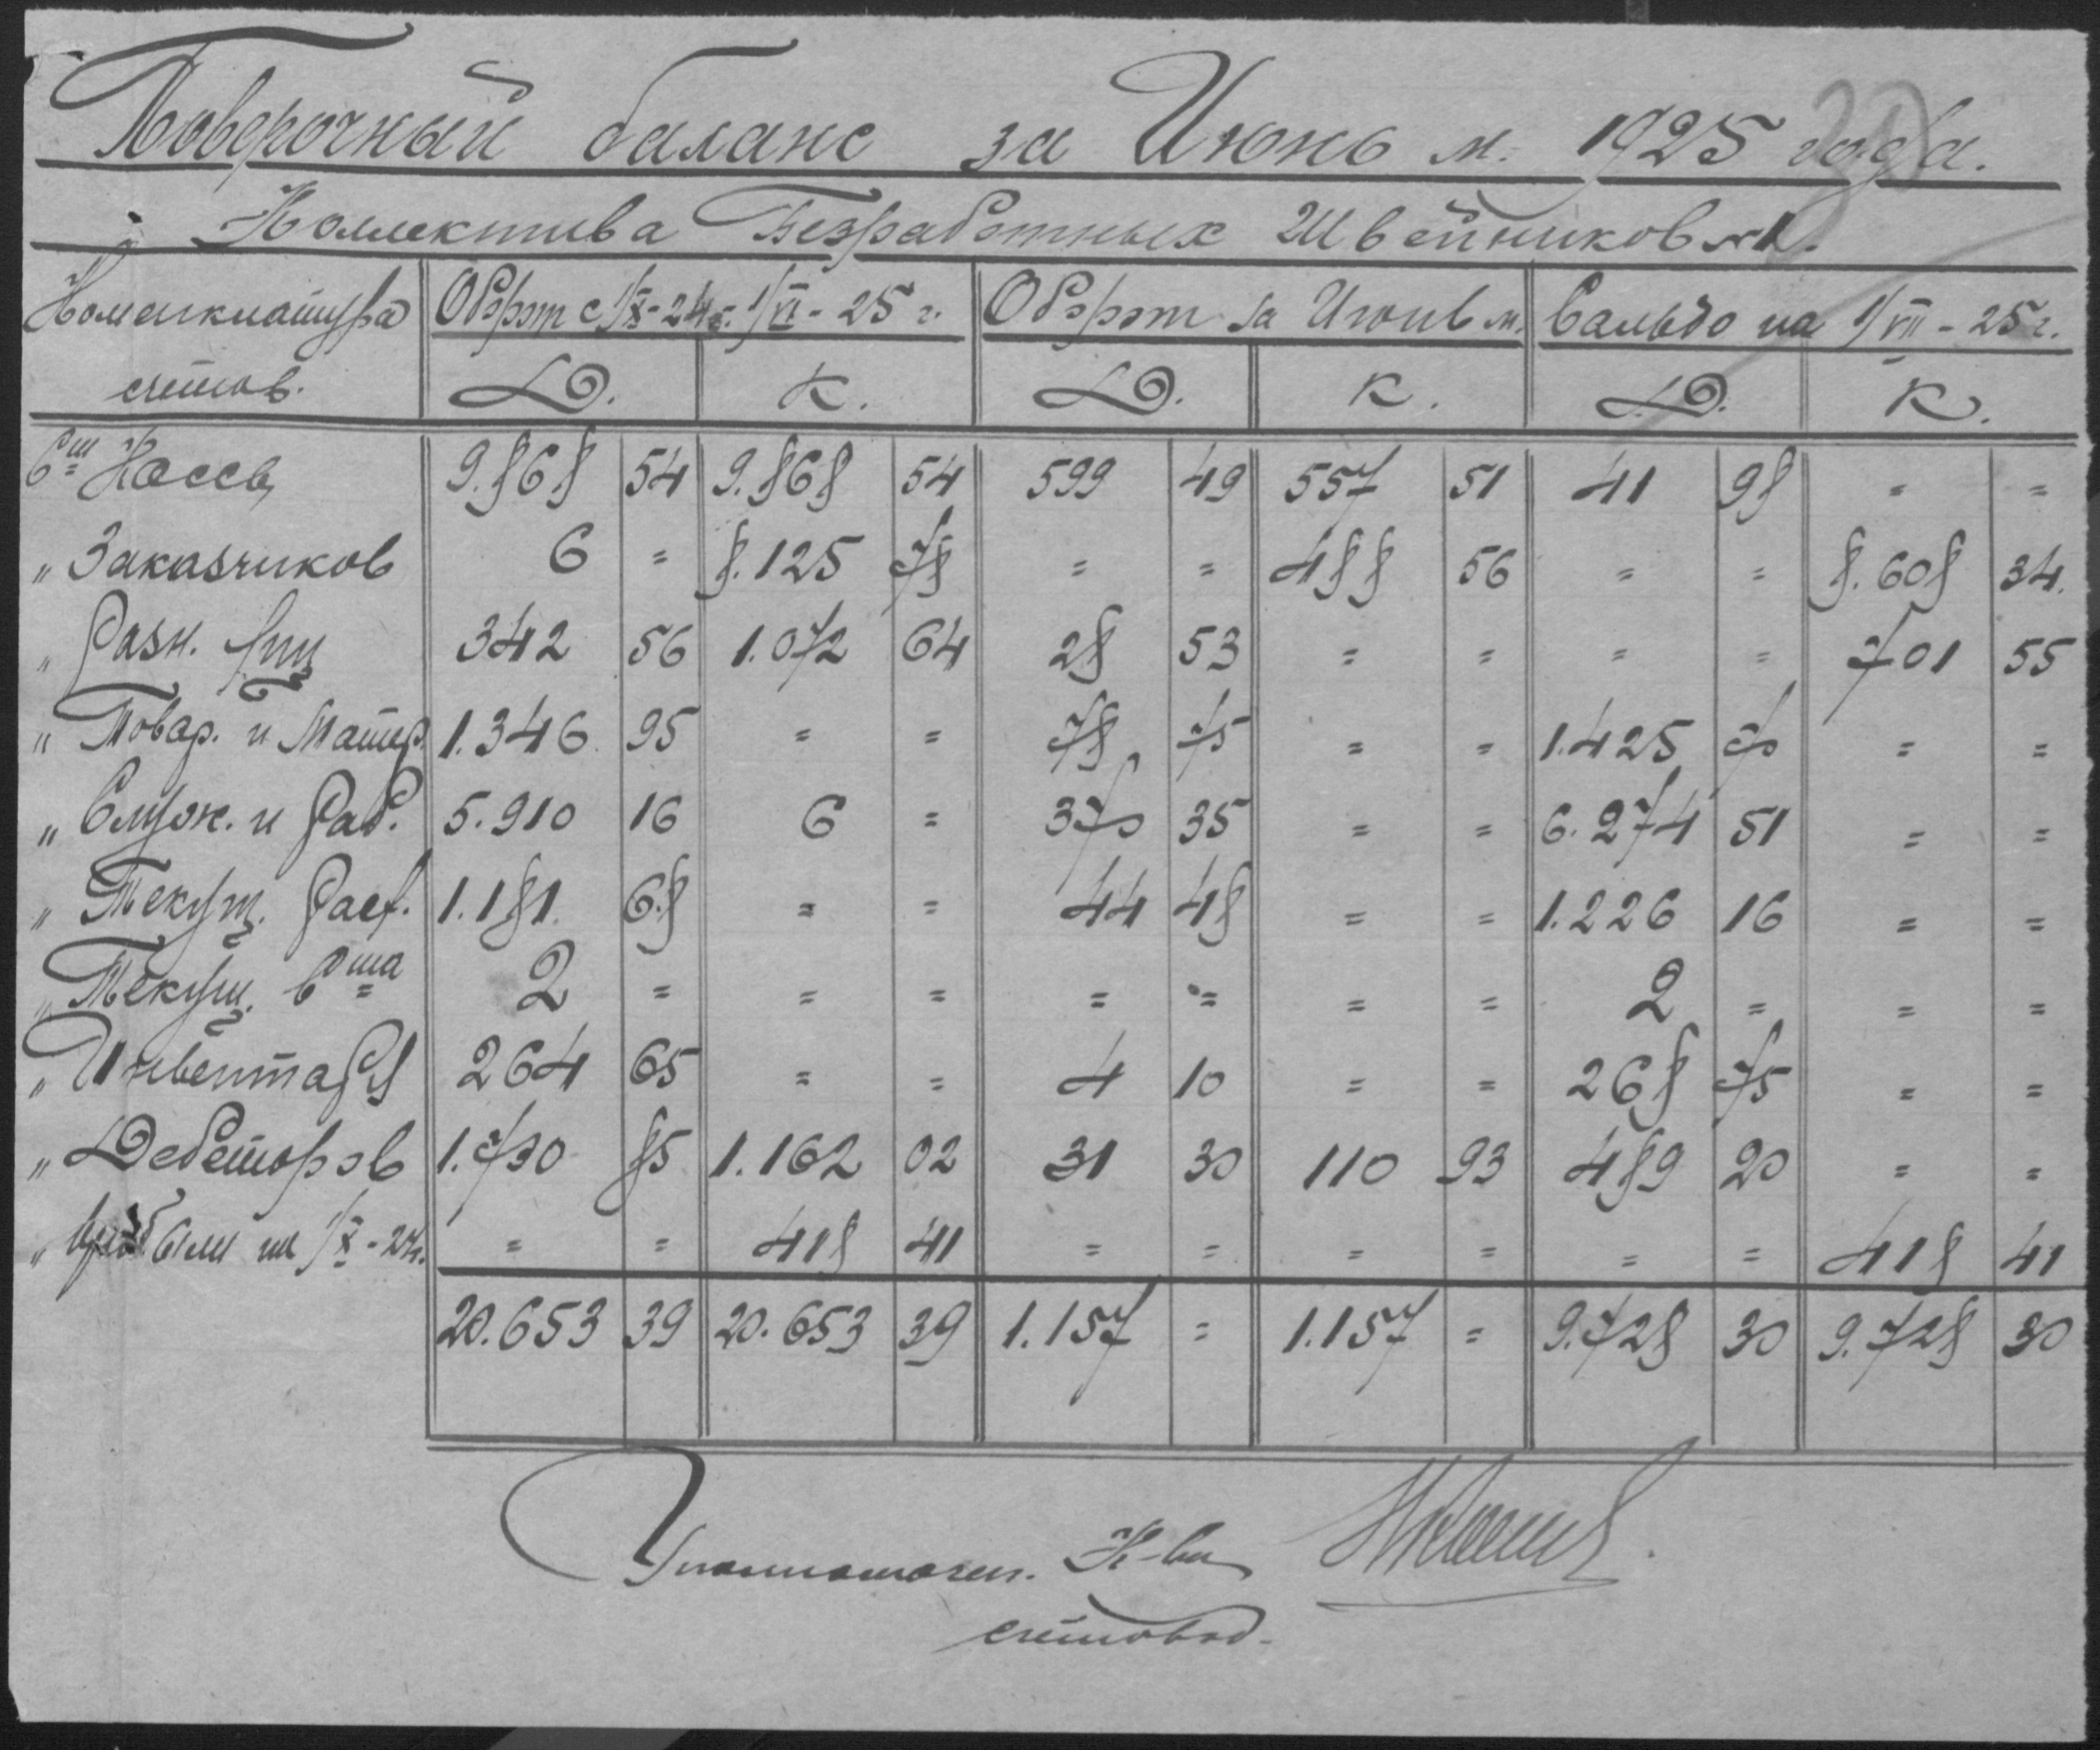 Поверочный баланс за Июнь м. 1925 года.
Коллектива Безработных Швейников №1.
Номенклатура счетов. Оборот с 1/X-24г. 1/VI-25 г. Оборот за Июнь м. Сальдо на 1/VII-25 г.
Д. К. Д. К. Д. К.
Сш Кассы 9.868 54 9.868 54 599 49 557 51 41 98 = =
„ Заказчиков 6 = 8.125 78 = = 488 56 = = 8.608 34.
„ Разн. лиц 342 56 1.072 64 28 53 = = = = 701 55
„ Товар. и Матер. 1.346 95 = = 78 75 = = 1.425 70 = =
„ Служ. и Раб. 5.910 16 6 = 370 35 = = 6.274 51 = =
„ Текущ. Расх. 1.181. 68 = = 44 48 = = 1.226 16 = =
„ Текущ. Сша 2 = = = = = = = 2 = = =
„ Инвентаря 264 65 = = 4 10 = = 268 75 = =
„ Дебеторов 1.730 85 1.162 02 31 30 110 93 489 20 = =
„ Прибыли на 1/X-24г. = = 418 41 = = = = = = 418 41
20.653 39 20.653 39 1.157 = 1.157 = 9.728 30 9.728 30
Уполномочен. К-ва
счетовод.